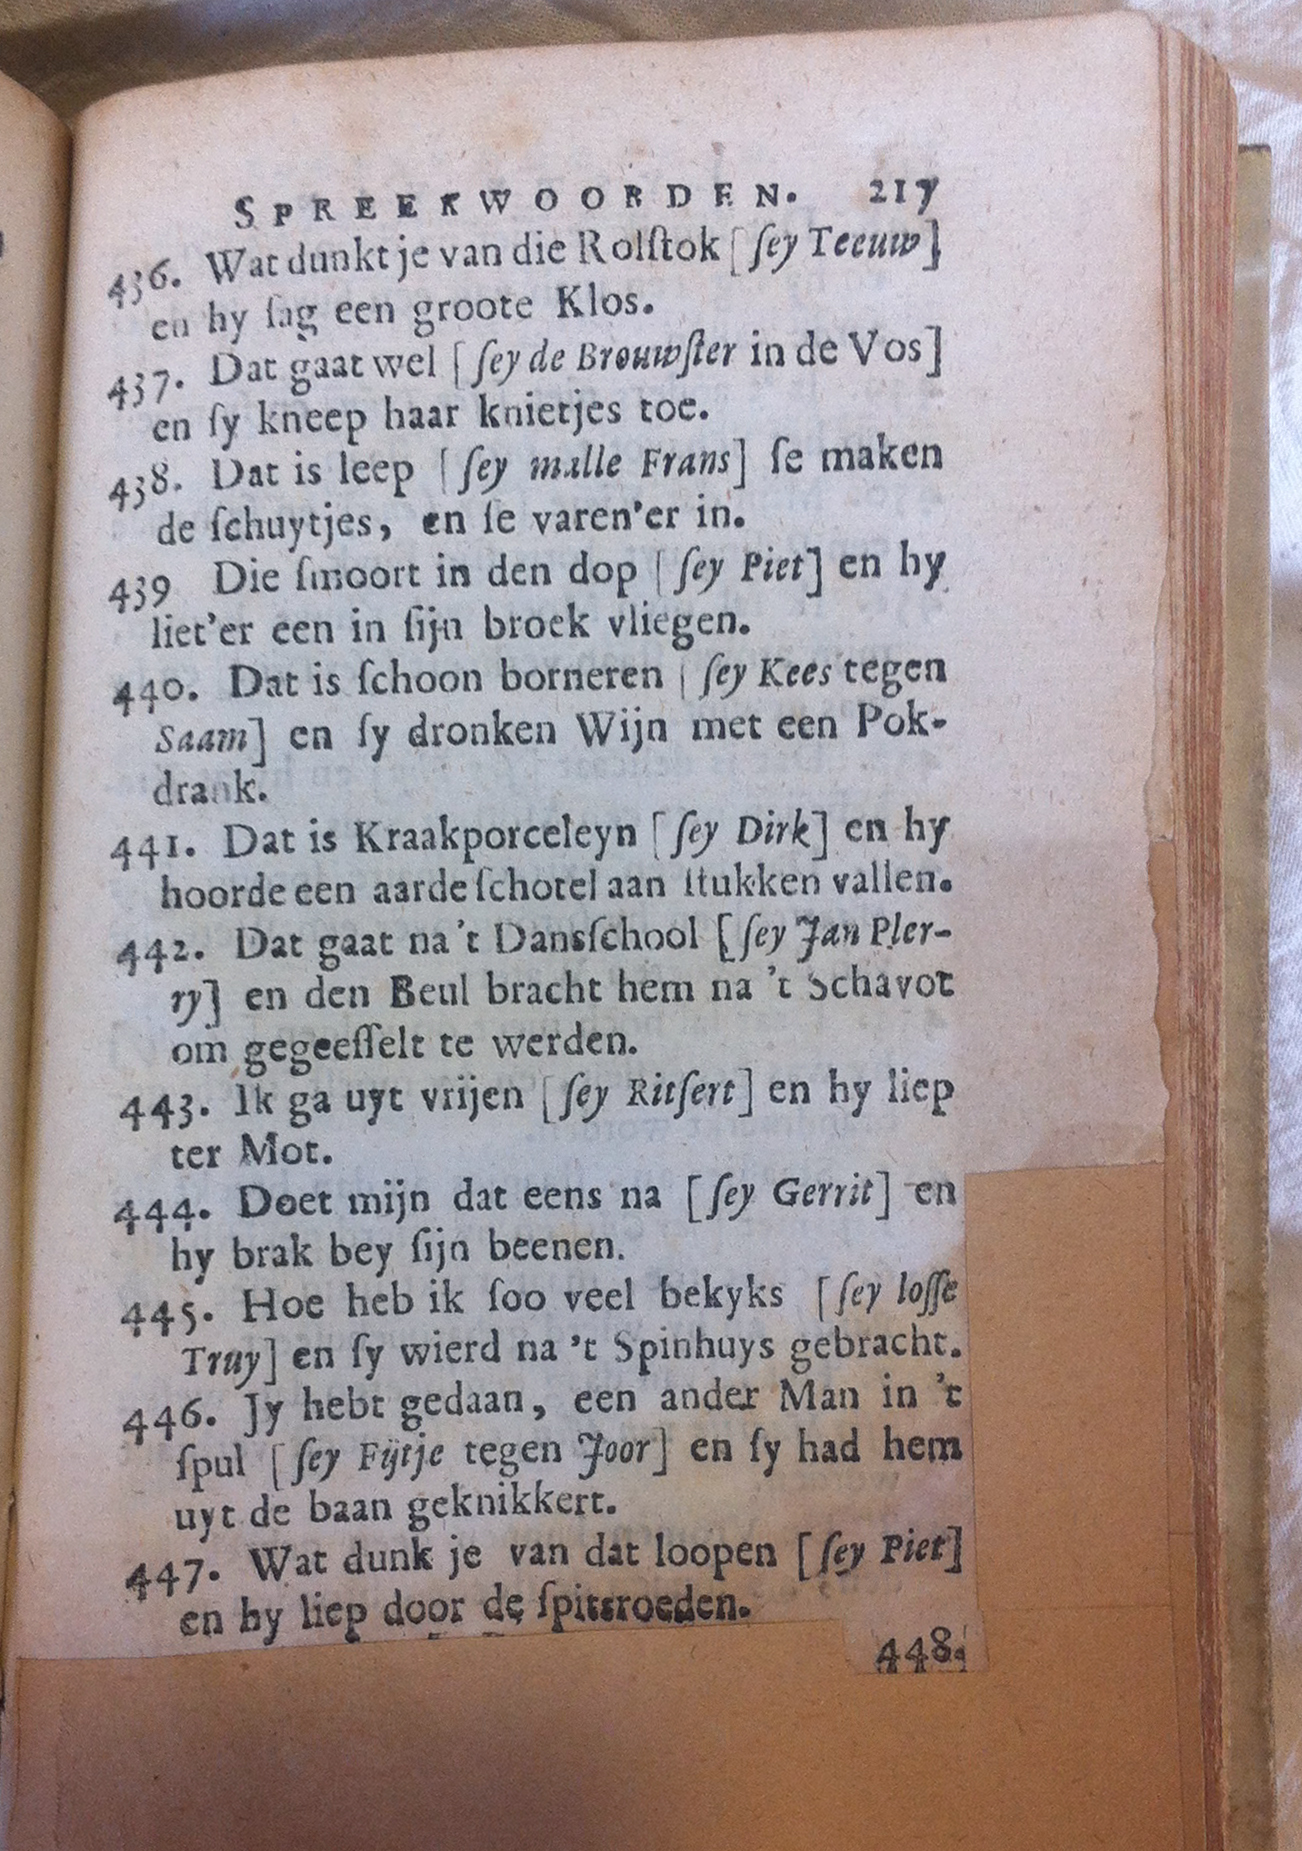 SPREEKWOORDEN. 217
436. Wat dunkt je van die Rolſtok [ſey Teeuw]
en hy ſag een groote Klos.
437. Dat gaat wel [ſey de Brouwſter in de Vos]
en ſy kneep haar knietjes toe.
438. Dat is leep [ſey malle Frans] ſe maken
de ſchuytjes, en ſe varen'er in.
439 Die ſmoort in den dop [ſey Piet] en hy
liet'er een in ſijn broek vliegen.
440. Dat is ſchoon borneren [ſey Kees tegen
Saam] en ſy dronken Wijn met een Pok-
drank.
441. Dat is Kraakporceleyn [ſey Dirk] en hy
hoorde een aarde ſchotel aan ſtukken vallen.
442. Dat gaat na 't Dansſchool [ſey Jan Pler-
ry] en den Beul bracht hem na 't Schavot
om gegeeſſelt te werden.
443. Ik ga uyt vrijen [ſey Ritſert] en hy liep
ter Mot.
444. Doet mijn dat eens na [ſey Gerrit] en
hy brak bey ſijn beenen.
445. Hoe heb ik ſoo veel bekyks [ſey loſſe
Truy] en ſy wierd na 't Spinhuys gebracht.
446. Jy hebt gedaan, een ander Man in 't
ſpul [ſey Fijtje tegen Joor] en ſy had hem
uyt de baan geknikkert.
447. Wat dunk je van dat loopen [ſey Piet]
en hy liep door de ſpitsroeden.
448.